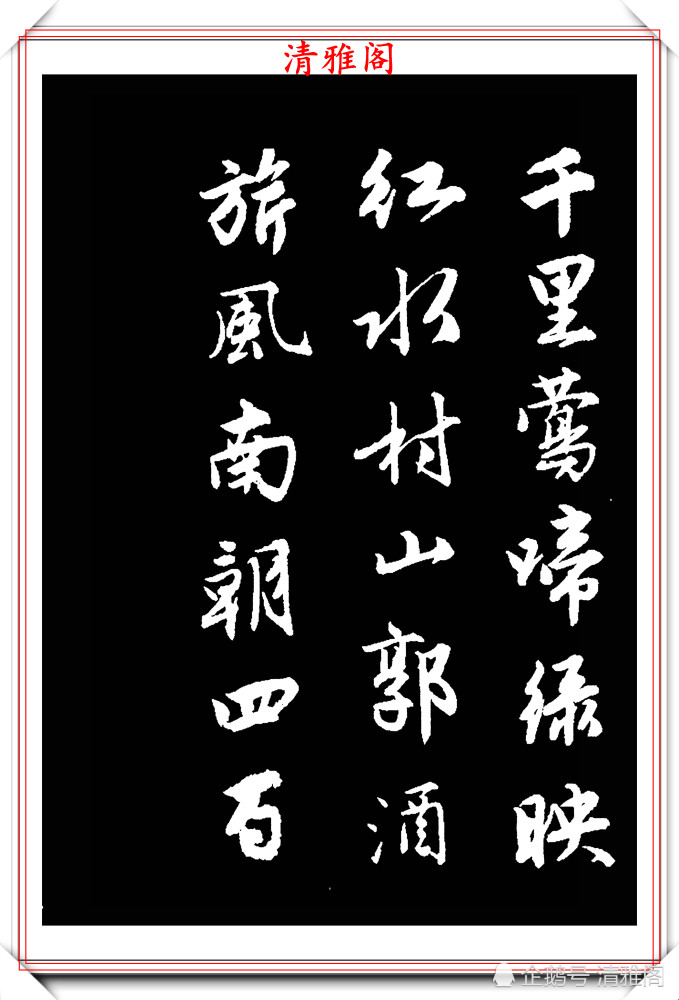 清雅阁
千里莺啼绿映
红水村山郭酒
旗風南朝四百
企鹅号 清雅阁